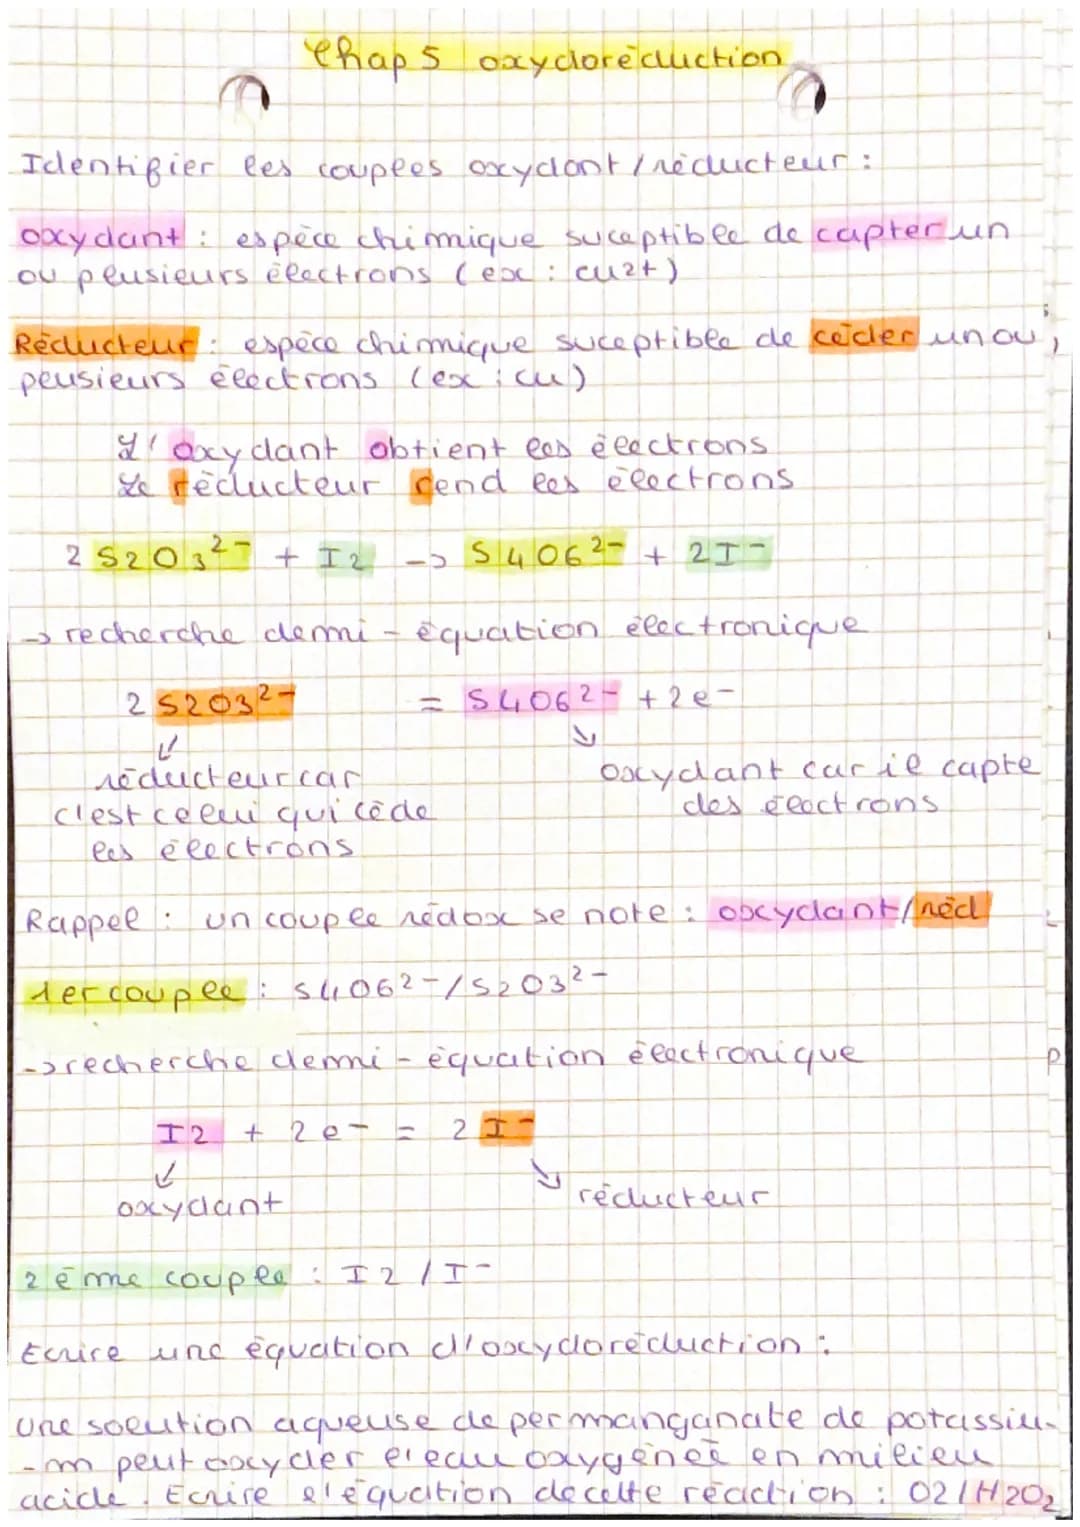 Chap 5 oxydoréduction
Identifier les couples oxydant / réducteur :
oxydant : espèce chimique suceptible de capter un
ou plusieurs électrons (ex : cu2+)
Réducteur : espèce chimique suceptible de céder un ou
plusieurs électrons (ex : cu)
L'oxydant obtient les électrons
Le réducteur rend les électrons
2 S2O3²⁻ + I2 -> S4O6²⁻ + 2I⁻
-> recherche demi-équation électronique
2 S2O3²⁻ = S4O6²⁻ + 2e⁻
réducteur car
c'est celui qui cède
les électrons
oxydant car il capte
des électrons
Rappel : un couple rédox se note : oxydant/réd
1er couple : S4O6²⁻/S2O3²⁻
-> recherche demi-équation électronique
I2 + 2e⁻ = 2 I⁻
oxydant
réducteur
2ème couple : I2 / I⁻
Ecrire une équation d'oxydoréduction :
Une solution aqueuse de permanganate de potassiu-
-m peut oxyder l'eau oxygénée en milieu
acide. Ecrire l'équation de cette réaction : O2/H2O2